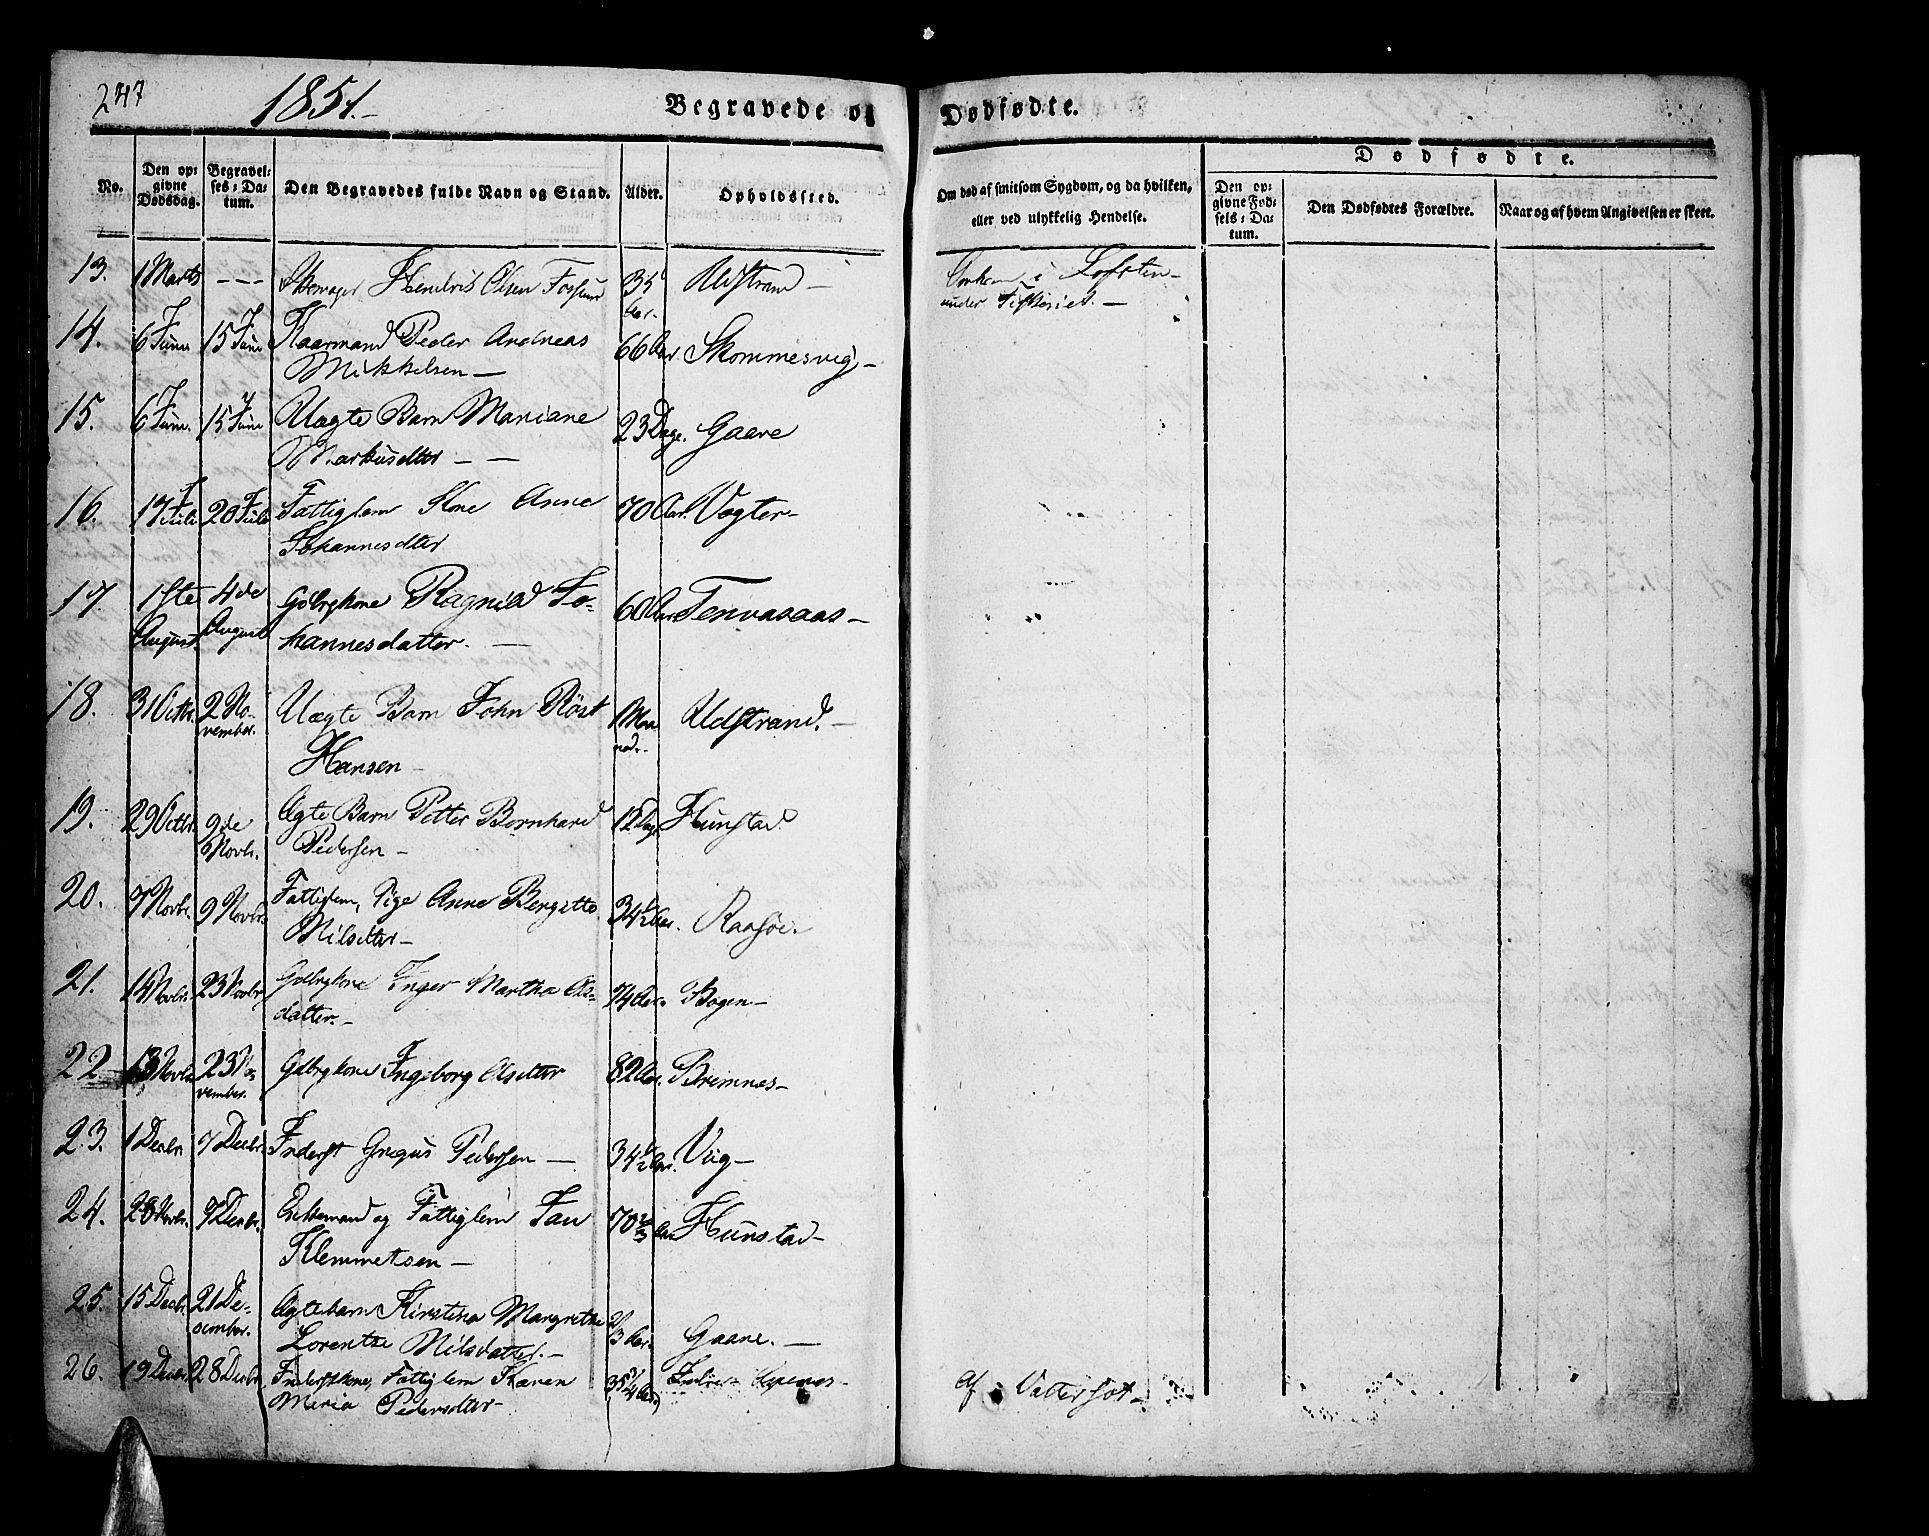 247
1851.-
Begravede og Dødfødte.
No.
Den opgivne Dødsdag.
Begravelses-Datum.
Den Begravedes fulde Navn og Stand.
Alder.
Opholdssted.
Om død af smitsom Sygdom, og da hvilken, eller ved ulykkelig Hendelse.
Dødfødte.
Den opgivne Fødsels-Datum.
Den Dødfødtes Forældre.
Naar og af hvem Angivelsen er skeet.
13. 1 Marts --- Skomager Hendrik Olsen Fossum 35 Aar. Udstrand - Omkom i Lofoten
under Fiskeriet. -
14. 6 Juni 15 Juni Kaarmand Peder Andreas 66 Aar Skommesvig -
Mikkelsen -
15. 6 Juni. 15 Juni Uægte Barn Mariane 23 Dage. Gaare
Markusdtter - -
16. 17 Juli 20 Juli Fattiglem Kone Anne 70 Aar. Vogter-
Johannesdtter
17. 1ste August. 4de August Gdbrgkone Ragnild Jo- 60 Aar Tenvasaas -
hannesdatter. -
18. 31 Octbr. 2 November. Uægte Barn John Röst 1 Maaned. Udstrand. -
Hansen -
19. 29 Octbr. 9de Novbr. Ægte Barn Petter Bernhard 12 Dage Hunstad.
Pedersen -
20. 7 Novbr. 9 Novbr. Fattiglem, Pige Anne Bergitte 34½ Aar. Raasöe.
Nilsdtter -
21. 14 Novbr. 23 Novbr Gdbrgkone Inger Martha Ols- 74 Aar. Bogen -
datter. -
22 13 Novbr. 23 November. Gdbrgkone Ingeborg Olsdtter 82 Aar. Bremnes -
23. 1 Decbr. 7 Decbr. Inderst Gregus Pedersen - 34½ Aar. Vig -
24. 28 Novbr. 7 Decbr. Enkemand og Fattiglem Jan 70⅔ Aar Hunstad -
Klemmetsen -
25. 15 Decbr. 21 December. Ægtebarn Kirstina Margrethe ⅔ Aar. Gaare. -
Lorentse Nilsdatter. -
26. 19 Decbr. 28 Decbr. Inderstkone, Fattiglem Karen 35¼ Aar Af Vattersot -
Maria Pedersdtter -